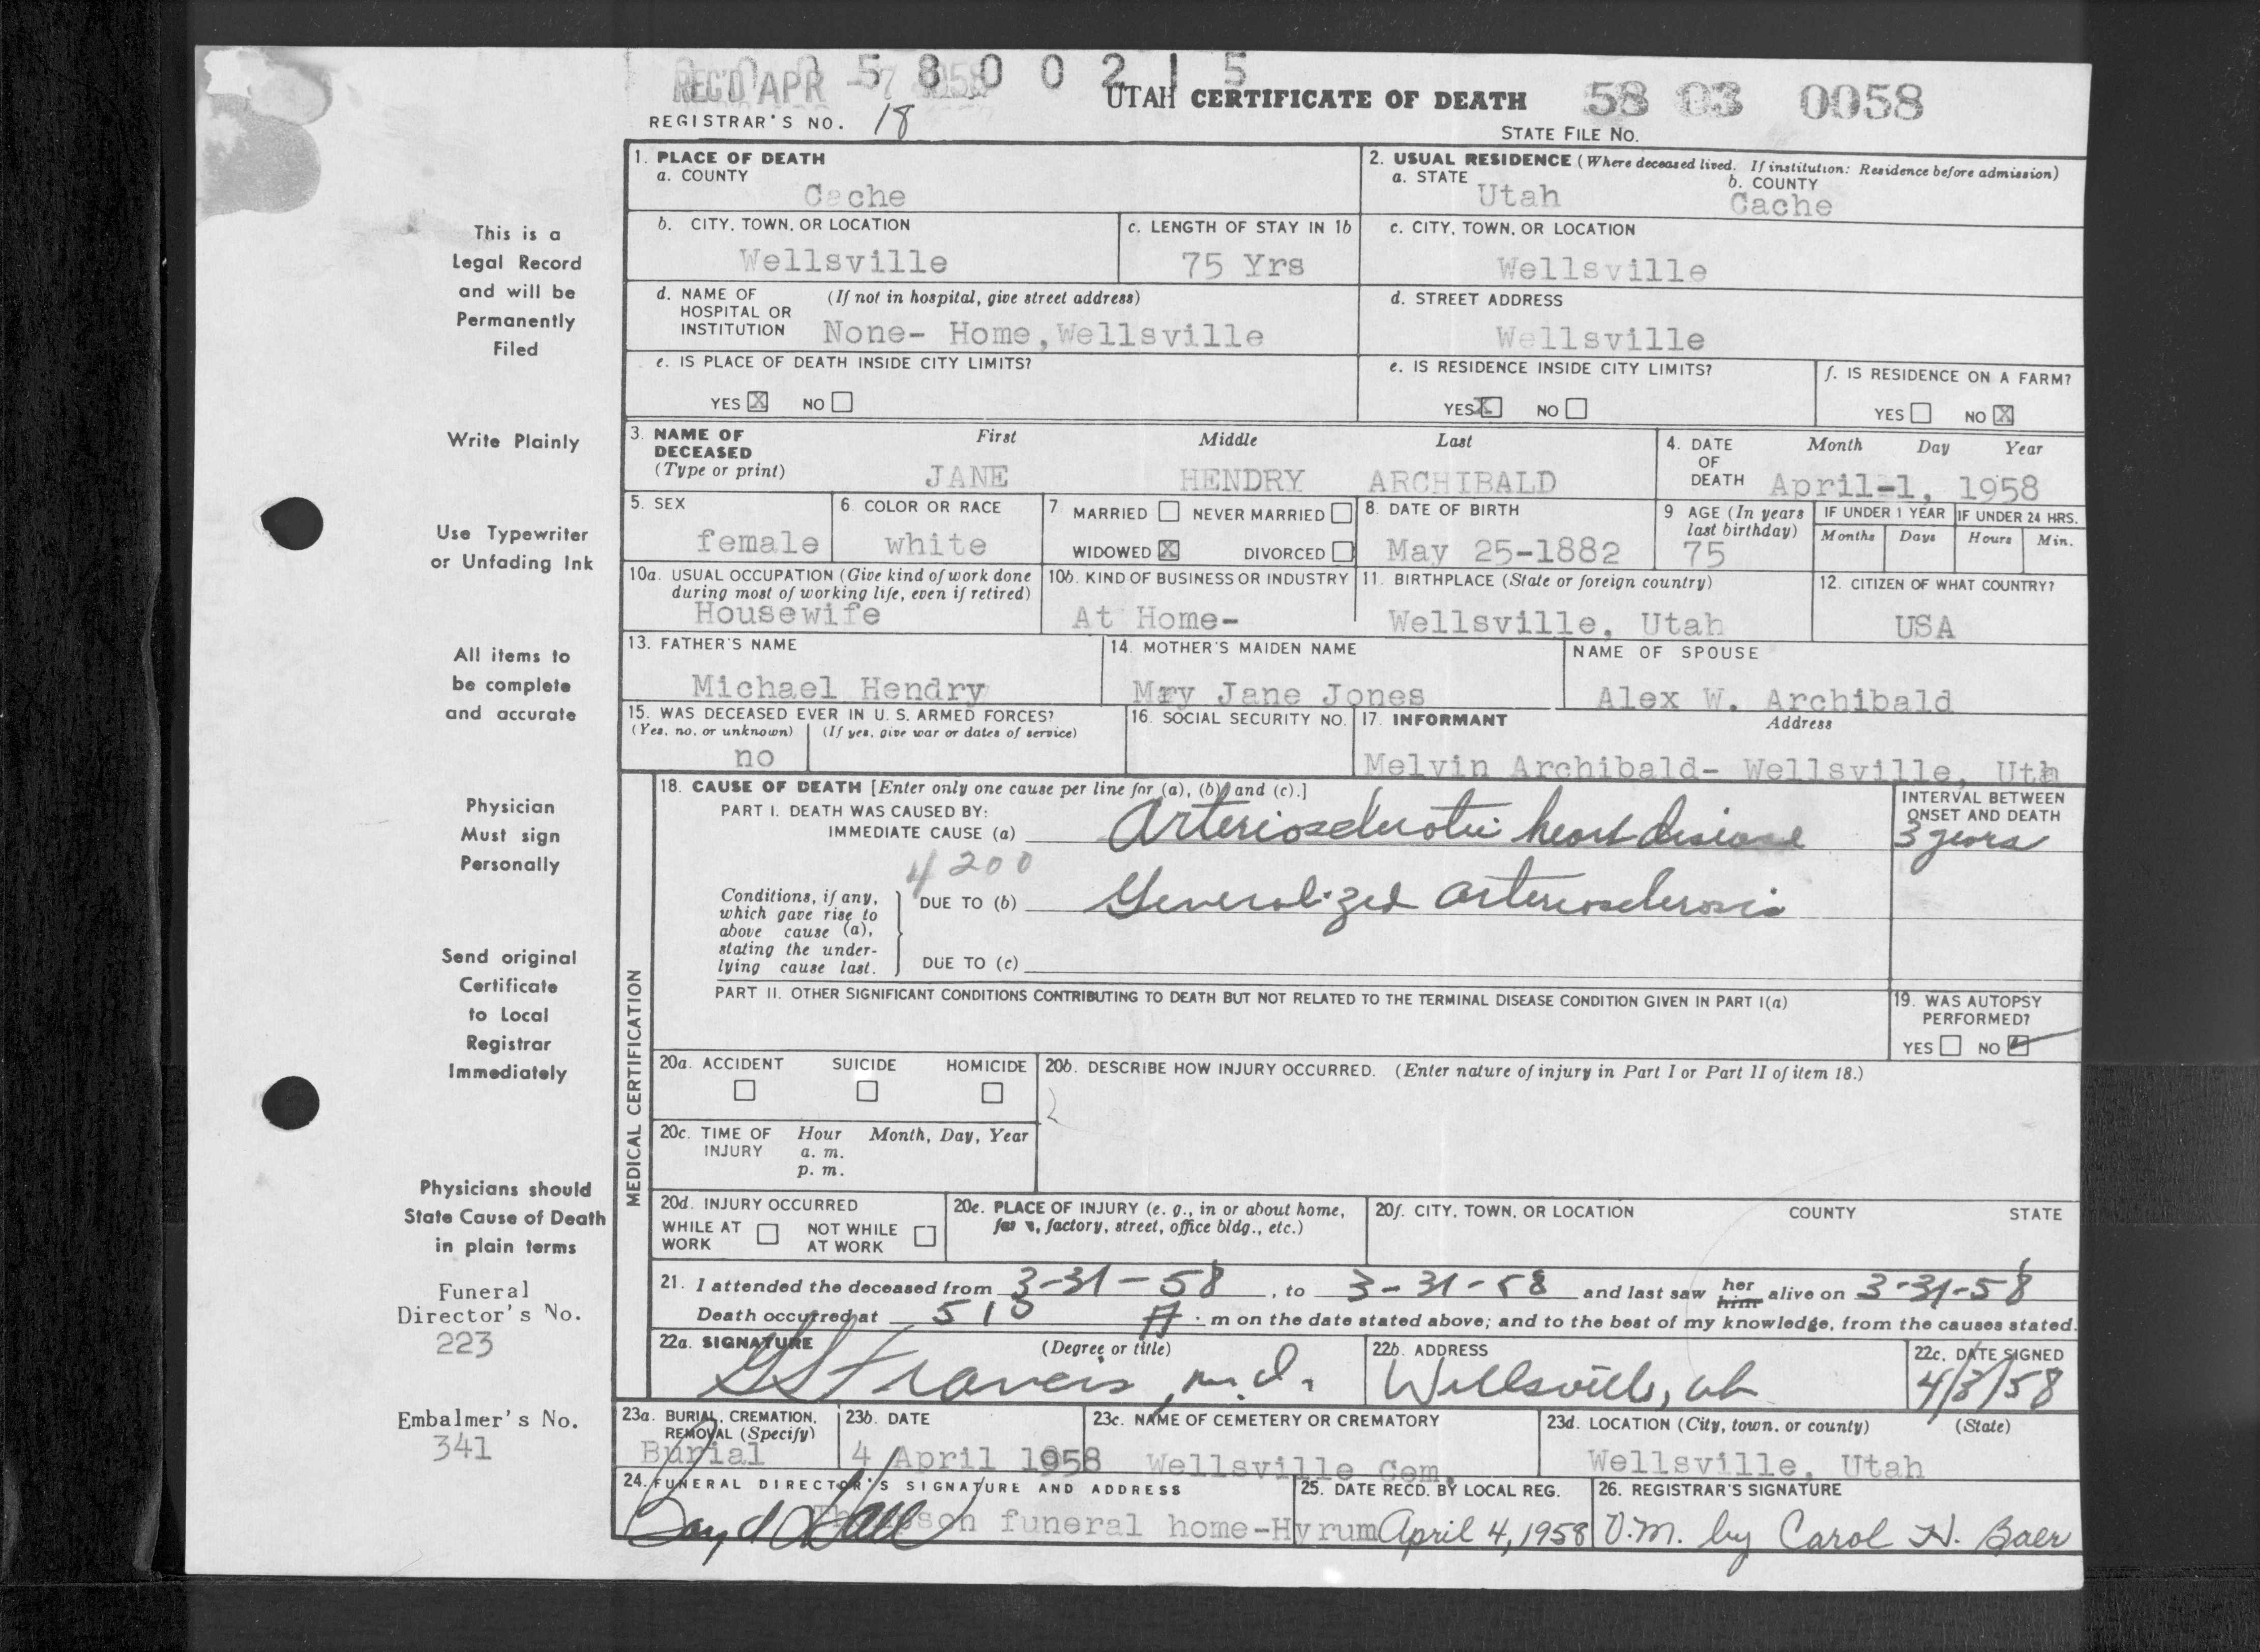 REC'D APR -7 1958
5 8 0 0 2 1 5
UTAH CERTIFICATE OF DEATH 58 03 0058
REGISTRAR'S NO. 18
STATE FILE NO.
This is a
Legal Record
and will be
Permanently
Filed
Write Plainly
Use Typewriter
or Unfading Ink
All items to
be complete
and accurate
Physician
Must sign
Personally
Send original
Certificate
to Local
Registrar
Immediately
Physicians should
State Cause of Death
in plain terms
Funeral
Director's No.
223
Embalmer's No.
341
1. PLACE OF DEATH
a. COUNTY
Cache
2. USUAL RESIDENCE (Where deceased lived. If institution: Residence before admission)
a. STATE
Utah
b. COUNTY
Cache
b. CITY, TOWN, OR LOCATION
Wellsville
c. LENGTH OF STAY IN 1b
75 Yrs
c. CITY, TOWN, OR LOCATION
Wellsville
d. NAME OF HOSPITAL OR INSTITUTION
(If not in hospital, give street address)
None- Home,Wellsville
d. STREET ADDRESS
Wellsville
e. IS PLACE OF DEATH INSIDE CITY LIMITS?
YES X NO
e. IS RESIDENCE INSIDE CITY LIMITS?
YES X NO
f. IS RESIDENCE ON A FARM?
YES NO X
3. NAME OF DECEASED
(Type or print)
First Middle Last
JANE HENDRY ARCHIBALD
4. DATE OF DEATH
Month Day Year
April-1, 1958
5. SEX
female
6. COLOR OR RACE
white
7. MARRIED NEVER MARRIED
WIDOWED X DIVORCED
8. DATE OF BIRTH
May 25-1882
9 AGE (In years last birthday)
75
IF UNDER 1 YEAR
Months Days
IF UNDER 24 HRS.
Hours Min.
10a. USUAL OCCUPATION (Give kind of work done during most of working life, even if retired)
Housewife
10b. KIND OF BUSINESS OR INDUSTRY
At Home-
11. BIRTHPLACE (State or foreign country)
Wellsville, Utah
12. CITIZEN OF WHAT COUNTRY?
USA
13. FATHER'S NAME
Michael Hendry
14. MOTHER'S MAIDEN NAME
Mry Jane Jones
NAME OF SPOUSE
Alex W. Archibald
15. WAS DECEASED EVER IN U. S. ARMED FORCES?
(Yes, no, or unknown) (If yes, give war or dates of service)
no
16. SOCIAL SECURITY NO.
17. INFORMANT Address
Melvin Archibald- Wellsville, Uth
MEDICAL CERTIFICATION
18. CAUSE OF DEATH [Enter only one cause per line for (a), (b) and (c).]
PART I. DEATH WAS CAUSED BY:
IMMEDIATE CAUSE (a) Arteriosclerotic heart disease
INTERVAL BETWEEN ONSET AND DEATH
3 years
4200
Conditions, if any, which gave rise to above cause (a), stating the underlying cause last.
DUE TO (b) Generalized arteriosclerosis
DUE TO (c)
PART II. OTHER SIGNIFICANT CONDITIONS CONTRIBUTING TO DEATH BUT NOT RELATED TO THE TERMINAL DISEASE CONDITION GIVEN IN PART I(a)
19. WAS AUTOPSY PERFORMED?
YES NO
20a. ACCIDENT SUICIDE HOMICIDE
20b. DESCRIBE HOW INJURY OCCURRED. (Enter nature of injury in Part I or Part II of item 18.)
20c. TIME OF INJURY
Hour Month, Day, Year
a. m.
p. m.
20d. INJURY OCCURRED
WHILE AT WORK NOT WHILE AT WORK
20e. PLACE OF INJURY (e. g., in or about home, factory, street, office bldg., etc.)
20f. CITY, TOWN, OR LOCATION COUNTY STATE
21. I attended the deceased from 3-31-58, to 3-31-58 and last saw her him alive on 3-31-58
Death occurred at 510 A. m on the date stated above; and to the best of my knowledge, from the causes stated.
22a. SIGNATURE (Degree or title)
m.d.
22b. ADDRESS
Wellsville, ut
22c. DATE SIGNED
4/3/58
23a. BURIAL, CREMATION, REMOVAL (Specify)
Burial
23b. DATE
4 April 1958
23c. NAME OF CEMETERY OR CREMATORY
Wellsville Cem.
23d. LOCATION (City, town, or county) (State)
Wellsville, Utah
24. FUNERAL DIRECTOR'S SIGNATURE AND ADDRESS
funeral home-Hyrum
25. DATE RECD. BY LOCAL REG.
April 4, 1958
26. REGISTRAR'S SIGNATURE
V.M. by Carol H. Baer